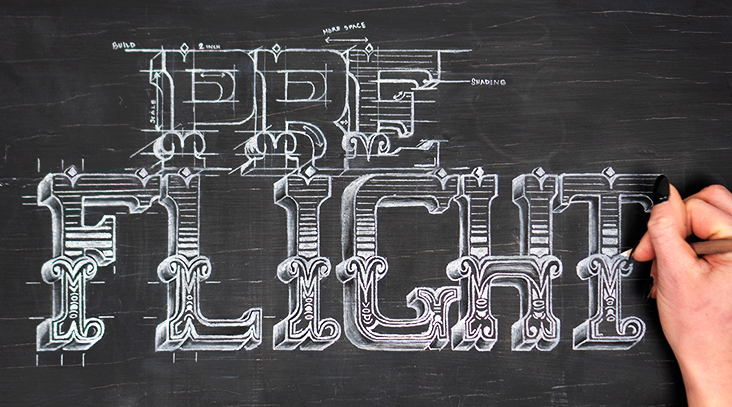 MORE SPACE
BUILD
2 INCH
SHADING
SCALE
PRE
FLIGHT